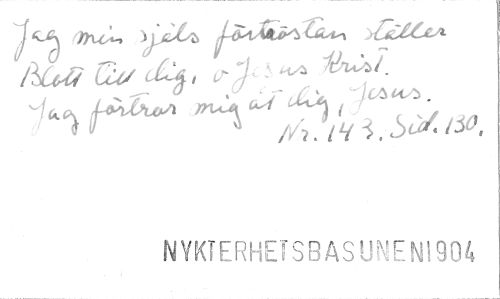 Jag min själs förtröstan ställer
Blott till dig, o Jesus Krist.
Jag förtror mig åt dig, Jesus.
Nr. 143. Sid. 130.
NYKTERHETSBASUNEN1904